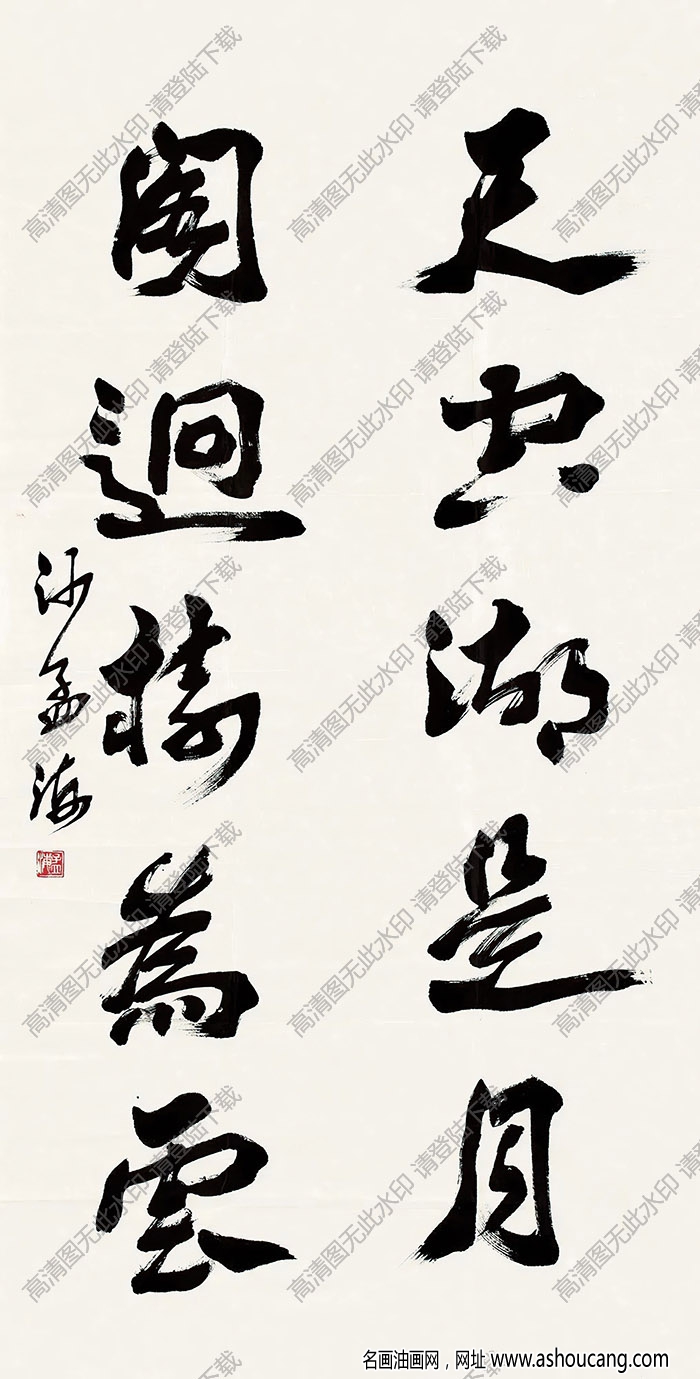 天空湖是月
閣逈樹為雲
沙孟海
孟海
高清图无此水印 请登陆下载
名画油画网，网址 www.ashoucang.com